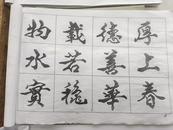 厚德載物
上善若水
春華穐實